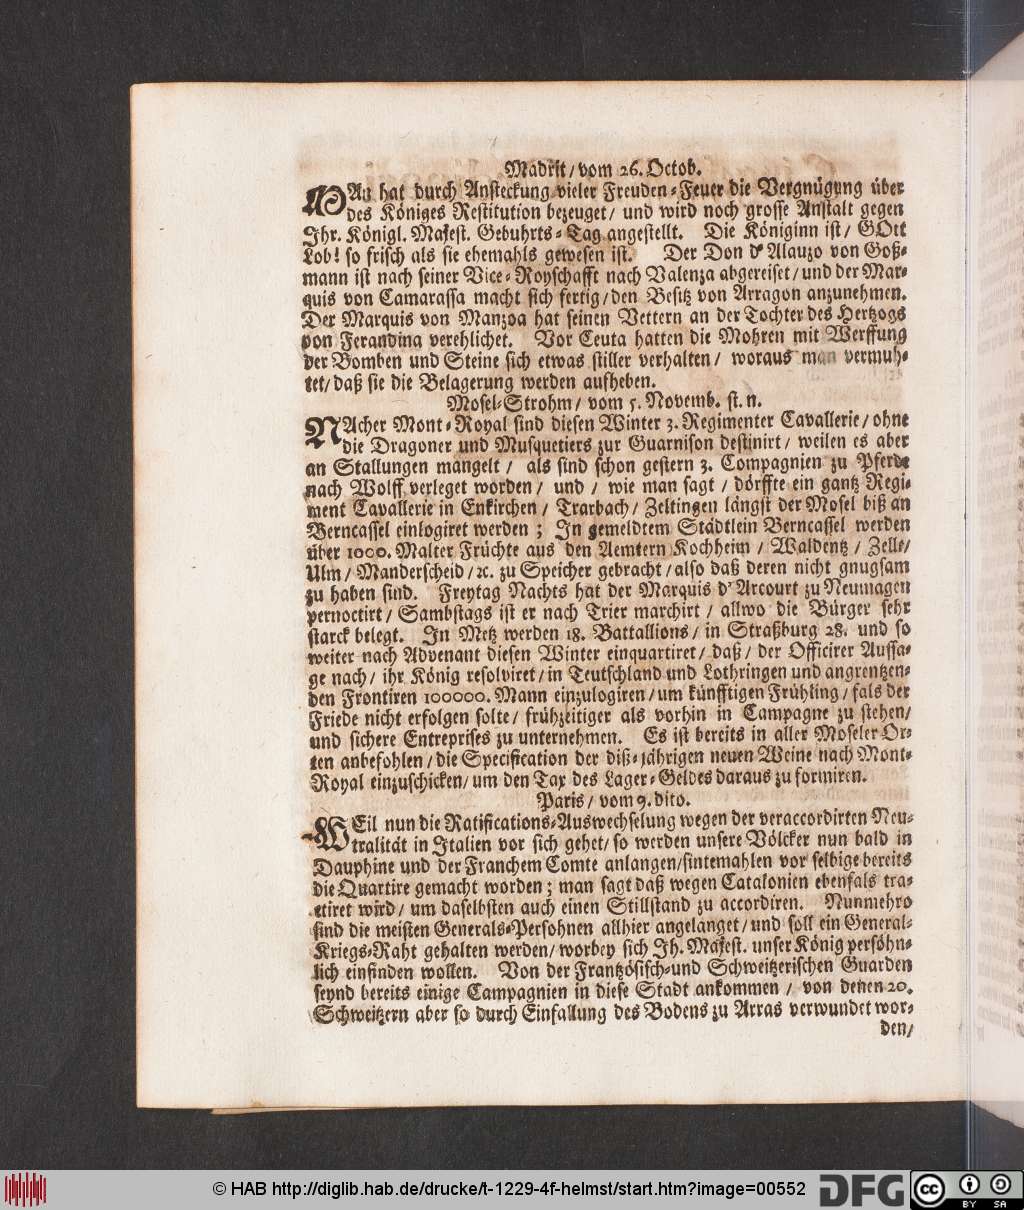 Madrit / vom 26. Octob.
MAn hat durch Ansteckung vieler Freuden-Feuer die Vergnügung über
des Königes Restitution bezeuget / und wird noch grosse Anstalt gegen
Ihr. Königl. Majest. Gebuhrts-Tag angestellt. Die Königinn ist / GOtt
Lob! so frisch als sie ehemahls gewesen ist. Der Don d' Alauzo von Goß-
mann ist nach seiner Vice-Royschafft nach Valenza abgereiset / und der Mar-
quis von Camarassa macht sich fertig / den Besitz von Arragon anzunehmen.
Der Marquis von Manzoa hat seinen Vettern an der Tochter des Hertzogs
von Ferandina verehlichet. Vor Ceuta hatten die Mohren mit Werffung
der Bomben und Steine sich etwas stiller verhalten / woraus man vermuh-
tet / daß sie die Belagerung werden aufheben.
Mosel-Strohm / vom 5. Novemb. st. n.
NAcher Mont-Royal sind diesen Winter 3. Regimenter Cavallerie / ohne
die Dragoner und Musquetiers zur Guarnison destinirt / weilen es aber
an Stallungen mangelt / als sind schon gestern 3. Compagnien zu Pferde
nach Wolff verleget worden / und / wie man sagt / dörffte ein gantz Regi-
ment Cavallerie in Enkirchen / Trarbach / Zeltingen längst der Mosel biß an
Berncassel einlogiret werden ; In gemeldtem Städtlein Berncassel werden
über 1000. Malter Früchte aus den Aemtern Kochheim / Waldentz / Zelle /
Ulm / Manderscheid / ꝛc. zu Speicher gebracht / also daß deren nicht gnugsam
zu haben sind. Freytag Nachts hat der Marquis d' Arcourt zu Neumagen
pernoctirt / Sambstags ist er nach Trier marchirt / allwo die Bürger sehr
starck belegt. In Metz werden 18. Battallions / in Straßburg 28. und so
weiter nach Advenant diesen Winter einquartiret / daß / der Officirer Aussa-
ge nach / ihr König resolviret / in Teutschland und Lothringen und angrentzen-
den Frontiren 100000. Mann einzulogiren / um künfftigen Frühling / fals der
Friede nicht erfolgen solte / frühzeitiger als vorhin in Campagne zu stehen /
und sichere Entreprises zu unternehmen. Es ist bereits in aller Moseler Or-
ten anbefohlen / die Specification der diß-jährigen neuen Weine nach Mont-
Royal einzuschicken / um den Tax des Lager-Geldes daraus zu formiren.
Paris / vom 9. dito.
WEil nun die Ratifications-Auswechselung wegen der veraccordirten Neu-
tralität in Italien vor sich gehet / so werden unsere Völcker nun bald in
Dauphine und der Franchem Comte anlangen / sintemahlen vor selbige bereits
die Quartire gemacht worden ; man sagt daß wegen Catalonien ebenfals tra-
ctiret wird / um daselbsten auch einen Stillstand zu accordiren. Nunmehro
sind die meisten Generals-Persohnen allhier angelanget / und soll ein General-
Kriegs-Raht gehalten werden / worbey sich Ih. Majest. unser König persöhn-
lich einfinden wollen. Von der Frantzösisch-und Schweitzerischen Guarden
seynd bereits einige Campagnien in diese Stadt ankommen / von denen 20.
Schweitzern aber so durch Einfallung des Bodens zu Arras verwundet wor-
den /
© HAB http://diglib.hab.de/drucke/t-1229-4f-helmst/start.htm?image=00552
DFG
cc BY SA